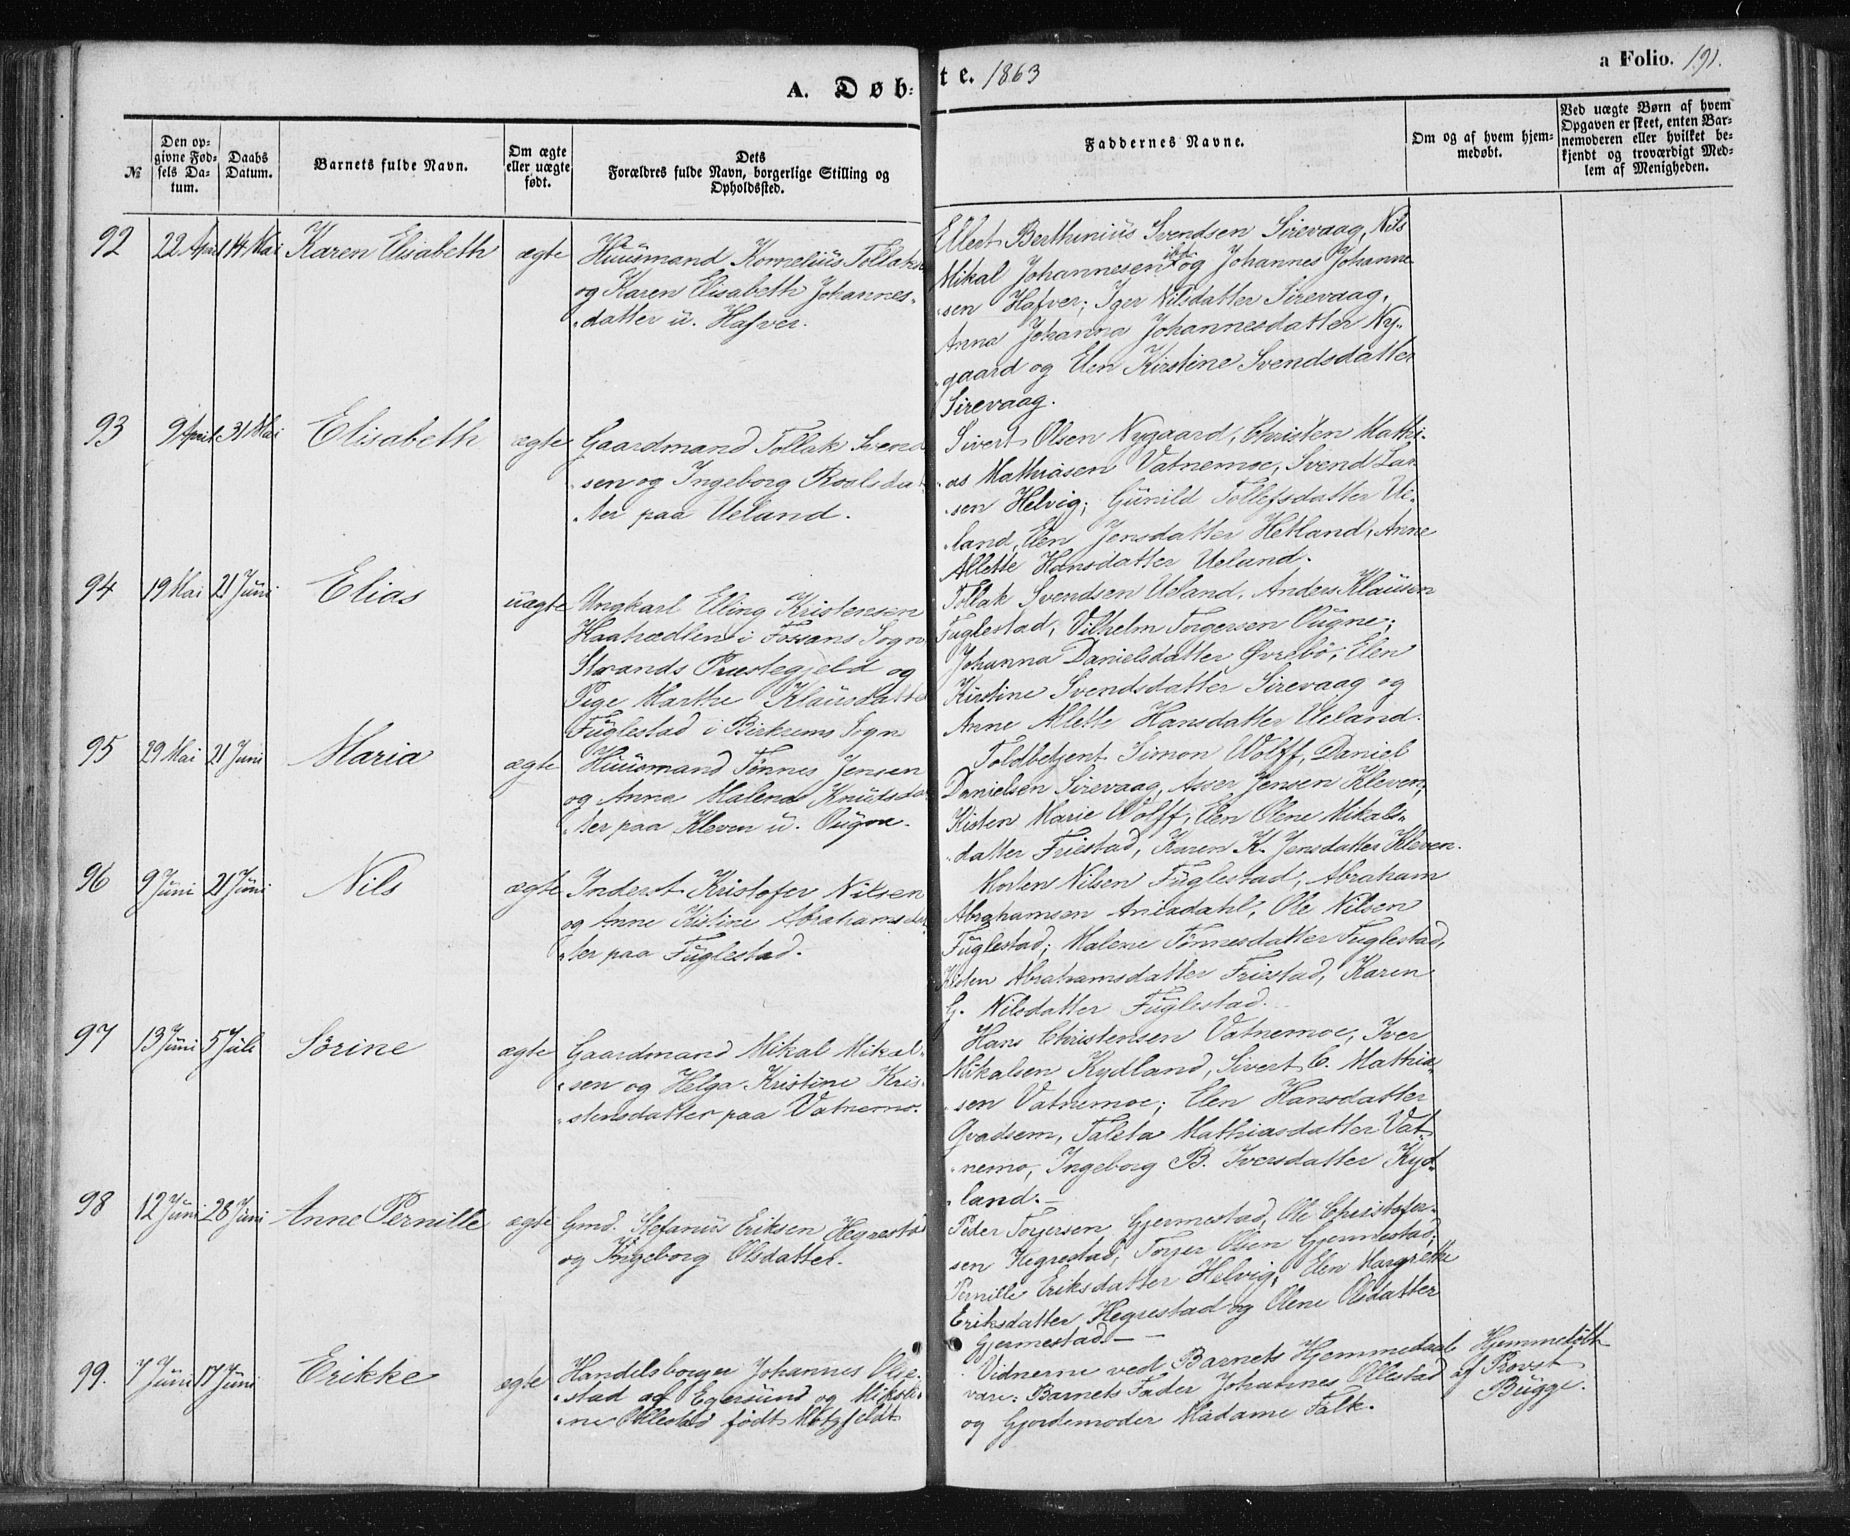 A. Døb-
te. 1863
a Folio. 191.
№
Den op-
givne Fød-
sels Da-
tum.
Daabs
Datum.
Barnets fulde Navn.
Om ægte
eller uægte
født.
Dets
Forældres fulde Navn, borgerlige Stilling og
Opholdssted.
Faddernes Navne.
Om og af hvem hjem-
medøbt.
Ved uægte Børn af hvem
Opgaven er skeet, enten Bar-
nemoderen eller hvilket be-
kjendt og troværdigt Med-
lem af Menigheden.
92 22 April 14 Mai Karen Elisabeth ægte
Huusmand Kornelius Tollaks
og Karen Elisabeth Johannes-
datter u. Hafver.
Ellert Berthinius Svendsen Sirevaag, Nils
Mikal Johannesen og Johannes Johanne
sen Hafver; Iger Nilsdatter Sirevaag,
Anna Johanna Johannesdatter Ny-
gaard og Elen Kirstine Svendsdatter
Sirevaag.
93 9 April 31 Mai Elisabeth ægte
Gaardmand Tollak Svend
sen og Ingeborg Roalsdat-
ter paa Ueland.
Sivert Olsen Nygaard, Christen Mathi-
as Mathiasen Vatnemoe, Svend Lar
sen Helvig; Gunild Tollefsdatter Ue-
land, Elen Jensdatter Hetland, Anne
Allette Hansdatter Ueland.
94 19 Mai 21 Juni Elias uægte
Ungkarl Elling Kristensen
i Fossans Sogn
Strands Præstegjeld og
Pige Marthe Klausdatter
Fuglestad i Birkrems Sogn
Tollak Svendsen Ueland, Anders Klausen
Fuglestad, Vilhelm Torgersen Ougne;
Johanna Danielsdatter Øvrebø, Elen
Kirstine Svendsdatter Sirevaag og
Anne Allette Hansdatter Ueland.
95 29 Mai 21 Juni Maria ægte
Huusmand Tønnes Jensen
og Anna Malena Knudsda
ter paa Kleven u. Ougne.
Toldbetjent Simon Wolff, Daniel
Danielsen Sirevaag, Asser Jensen Kleven;
Kisten Marie Wolff, Elen Olene Mikals-
datter Friestad, Karen K. Jensdatter Kleven.
96 9 Juni 21 Juni Nils ægte
Inderst Kristofer Nilsen
og Anne Kistine Abrahamsdat-
ter paa Fuglestad.
Morten Nilsen Fuglestad, Abraham
Abrahamsen Anisdahl, Ole Nilsen
Fuglestad; Malene Tønnesdatter Fuglestad,
Kisten Abrahamsdatter Friestad, Karen
G. Nilsdatter Fuglestad.
97 13 Juni 5 Juli Sørine ægte
Gaardmand Mikal Mikal-
sen og Helga Kristine Kris-
stensdatter paa Vatnemo.
Hans Christensen Vatnemoe, Iver
Mikalsen Kydland, Sivert C. Mathia-
sen Vatnemoe; Elen Hansdatter
Qvadsem, Taleta Mathiasdatter Vat-
nemo, Ingeborg B. Iversdatter Kyd-
land.
98 12 Juni 28 Juni Anne Pernille ægte
Gmd. Stefanus Eriksen Hegrestad
og Ingeborg Olsdatter.
Peder Torjersen Gjermestad, Ole Christofer-
sen Hegrestad, Torjer Olsen Gjermestad;
Pernille Eriksdatter Helvig, Elen Margrethe
Eriksdatter Hegrestad og Olene Olsdatter
Gjermestad.
99. 7 Juni 17 Juni Erikke ægte
Handelsborger Johannes Olle-
stad af Egersund og
Ollestad født Motzfeldt
Vidnerne ved Barnets Hjemmedaab
vare: Barnets Fader Johannes Ollestad
og Gjordemoder Madame Falk.
Hjemmedøbt
af Provst
Bugge.